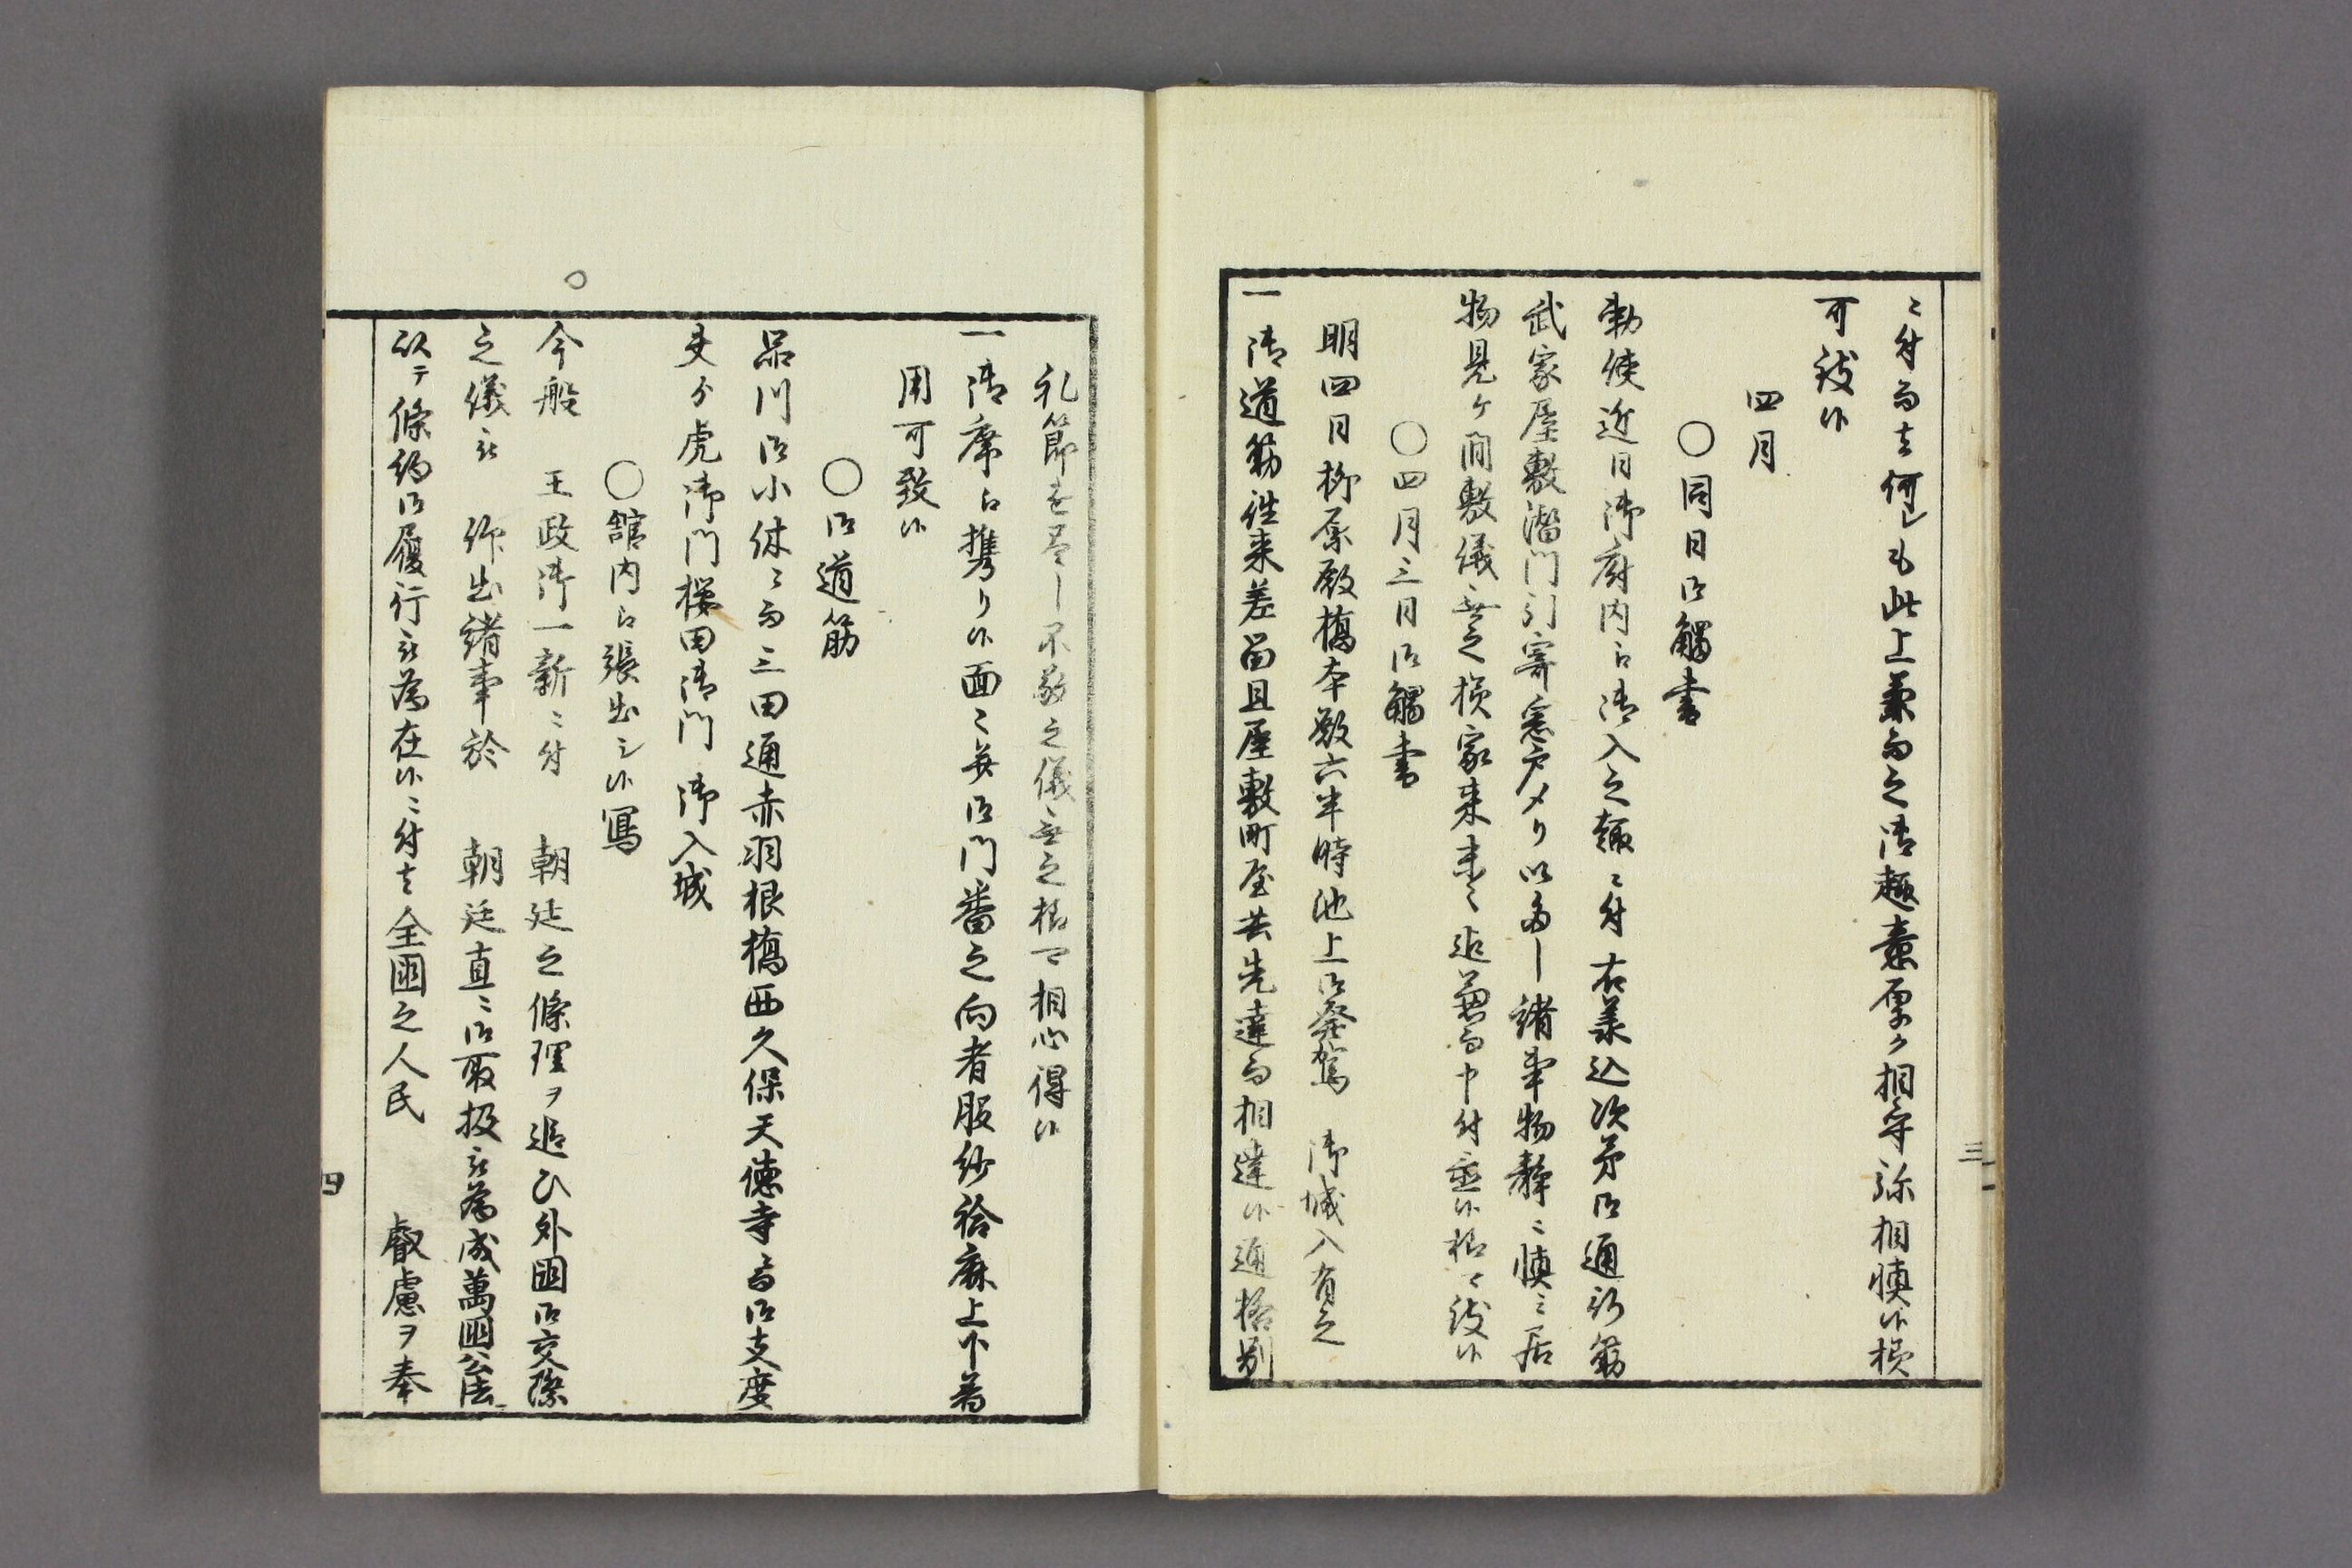 ニ付而者何レも此上兼而之御趣意厚ク相守弥相慎候様
可致候
四月
〇同日御觸書
勅使近日御府内江御入之趣ニ付右着込次第御通行筋
武家屋敷潜門引寄窓戸〆り以多し諸事物静ニ慎ミ居
物見ケ間敷儀無之様家来末々迄兼而申付置候様可致候
〇四月三日御觸書
明四日柳原殿橋本殿六半時池上御発駕 御城入有之
一御道筋往来差留且屋敷町屋共先達而相達候通格別
三
礼節を尽し不敬之儀無之様可相心得候
一御席江携り候面々并御門番之向者服紗袷麻上下着
用可致候
〇御道筋
品川御小休ニ而三田通赤羽根橋西久保天徳寺ニ而御支度
夫ゟ虎御門櫻田御門 御入城
〇舘内江張出シ候寫
今般 王政御一新ニ付 朝廷之條理ヲ追ひ外國御交際
之儀被 仰出諸事於 朝廷直ニ御取扱被為成萬國公法
以テ條約御履行被為在候ニ付者全國之人民 叡慮ヲ奉
四